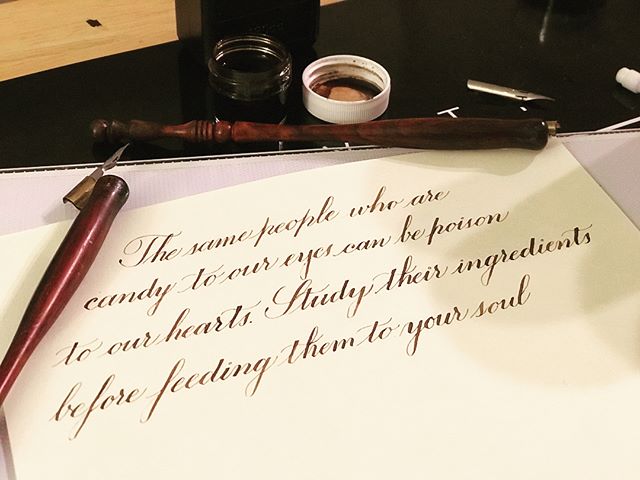 The same people who are
candy to our eyes can be poison
to our hearts. Study their ingredients
before feeding them to your soul